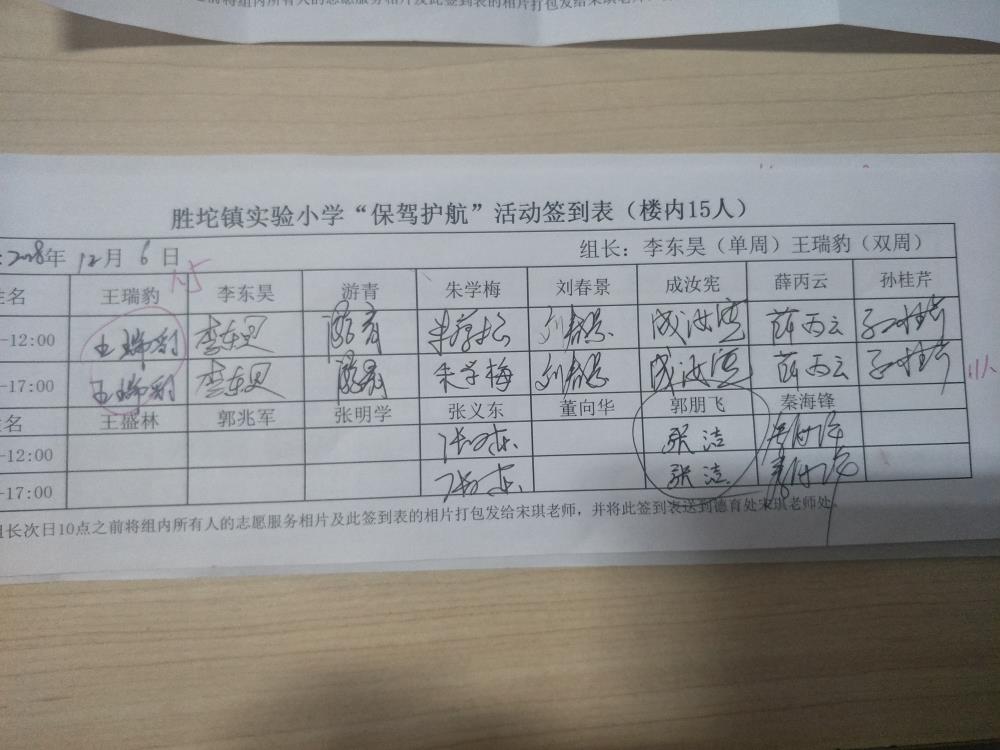 前将组内所有人的志愿服务相片及此签到表的相片打包发给宋琪老师
胜坨镇实验小学“保驾护航”活动签到表（楼内15人）
:2018年 12月 6日 组长：李东昊（单周）王瑞豹（双周）
姓名 王瑞豹 李东昊 游青 朱学梅 刘春景 成汝宪 薛丙云 孙桂芹
-12:00 王瑞豹 李东昊 游青 朱学梅 刘春景 成汝宪 薛丙云 孙桂芹
-17:00 王瑞豹 李东昊 游青 朱学梅 刘春景 成汝宪 薛丙云 孙桂芹
姓名 王盛林 郭兆军 张明学 张义东 董向华 郭朋飞 秦海锋
-12:00 张义东 张洁 秦海锋
-17:00 张义东 张洁 秦海锋
组长次日10点之前将组内所有人的志愿服务相片及此签到表的相片打包发给宋琪老师，并将此签到表送到德育处宋琪老师处。